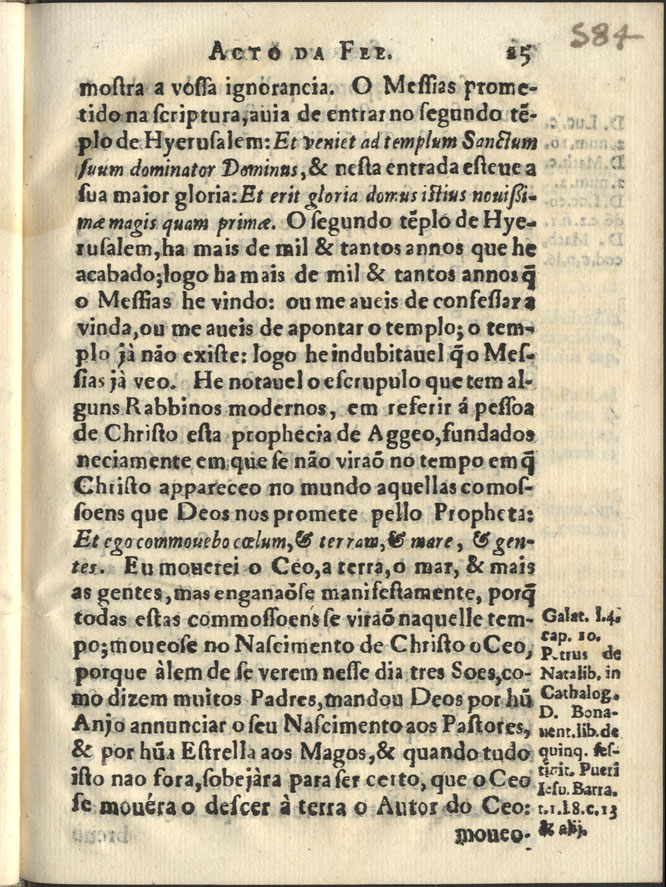 584
ACTO DA FEE. 25
mostra a vossa ignorancia. O Messias prome-
tido na scriptura, auia de entrar no segundo tẽ-
plo de Hyerusalem: Et veniet ad templum Sanctum
suum dominator Dominus, & nesta entrada esteue a
sua maior gloria: Et erit gloria domus istius nouissi-
mæ magis quam primæ. O segundo tẽplo de Hye-
rusalem, ha mais de mil & tantos annos que he
acabado; logo ha mais de mil & tantos annos q̃
o Messias he vindo: ou me aueis de confessar a
vinda, ou me aueis de apontar o templo; o tem-
plo jà não existe: logo he indubitauel q̃ o Mes-
sias jà veo. He notauel o escrupulo que tem al-
guns Rabbinos modernos, em referir á pessoa
de Christo esta prophecia de Aggeo, fundados
neciamente em que se não viraõ no tempo em q̃
Christo appareceo no mundo aquellas comos-
soens que Deos nos promete pello Propheta:
Et ego commouebo cœlum, & terram, & mare, & gen-
tes. Eu mouerei o Ceo, a terra, o mar, & mais
as gentes, mas enganaõse manifestamente, porq̃
todas estas commossoens se viraõ naquelle tem-
po; moueose no Nascimento de Christo o Ceo,
porque àlem de se verem nesse dia tres Soes, co-
mo dizem muitos Padres, mandou Deos por hũ
Anjo annunciar o seu Nascimento aos Pastores,
& por hũa Estrella aos Magos, & quando tudo
isto nao fora, sobejàra para ser certo, que o Ceo
se mouéra o descer à terra o Autor do Ceo:
moueo-
Galat. l.4.
cap. 10.
Petrus de
Natalib. in
Cathalog.
D. Bona-
uent. lib. de
quinq. fes-
tiuit. Pueri
Iesu. Barra.
t.1.l.8.c.13
& alij.